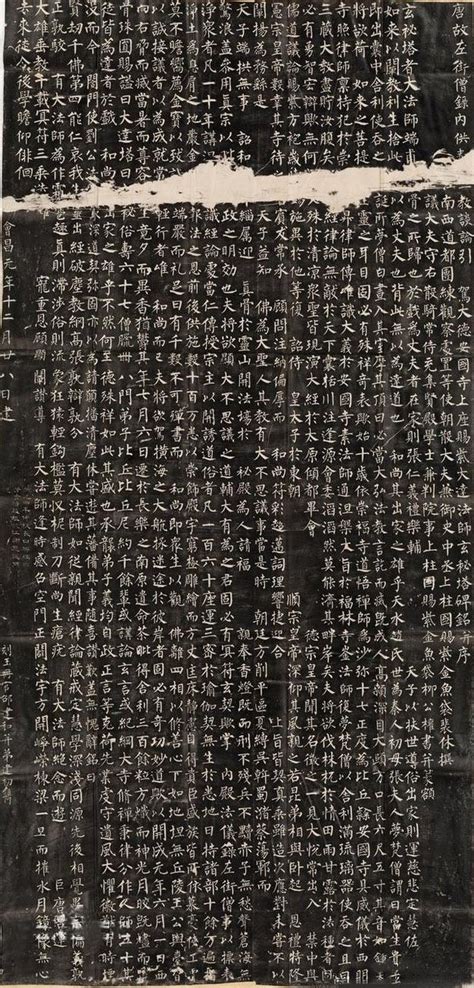 唐故左街僧錄內供
教談論引駕大德安國寺上座賜紫大達法師玄秘塔碑銘并序
南西道都團練觀察處置等使朝散大夫兼御史中丞上柱國賜紫金魚袋裴休撰
議大夫守右散騎常侍充集賢殿學士兼判院事上柱國賜紫金魚袋柳公權書并篆額
玄秘塔者大法師端甫骨之所歸也於戲為丈夫者在家則張仁義禮樂輔 天子以扶世導俗出家則運慈悲定慧佐
如來以闡教利生捨此以為丈夫也背此無以為達道也 和尚其出家之雄乎天水趙氏世為秦人初母張夫人夢梵僧謂曰當生貴子
即出囊中舍利使吞之誕所夢僧白晝入其室摩其頂曰必當大弘法教言訖而滅既成人高顙深目大頤方口長六尺五寸其音如鐘夫
將欲荷 如來之菩提靈之耳目固必有殊祥奇表歟始十歲依崇福寺道悟禪師為沙彌十七正度為比丘隸安國寺具威儀於西明
寺照律師稟持犯於崇昇律師傳唯識大義於安國寺素法師通涅槃大旨於福林寺崟法師復夢梵僧以舍利滿琉璃器使吞之且曰
三藏大教盡貯汝腹矣經律論無敵於天下囊括川注逢源會委滔滔然莫能濟其畔岸矣夫將欲伐株杌於情田雨甘露於法種者固
必有勇智宏辯歟無何殊於清涼眾聖皆現演大經於太原傾都畢會 德宗皇帝聞其名徵之一見大悅常出入 禁中與
儒道議論賜紫方袍歲時錫施異於他等復詔侍 皇太子於東朝 順宗皇帝深仰其風親之若昆弟相與臥起 恩禮特隆
憲宗皇帝數幸其寺待之有友常承 顧問注納偏厚而 和尚符彩超邁詞理響捷迎合 上旨皆契真乘雖造次應對未嘗不以
闡揚為務繇是 天子益知 佛為大聖人其教有大不思議事當是時 朝廷方削平區夏縛吳斡蜀瀦蔡蕩鄆而
天子端拱無事 詔和緇屬迎 真骨於靈山開法場於 秘殿為人請福 親奉香燈既而刑不殘兵不黷赤子無愁聲蒼海無
驚浪蓋參用真宗以政之明効也夫將欲顯大不思議之道輔大有為之君固必有冥符玄契歟掌 內殿法儀錄左街僧事以標表
淨眾者凡一十年講識經論處當仁傳授宗主以開誘道俗者凡一百六十座運三密於瑜伽契無生於悉地日持諸部十餘万遍指
淨土為息肩之地嚴金經為報法之恩前後供施數十百万悉以崇飾殿宇窮極雕繪而方丈匡床靜慮自得貴臣盛族皆所依慕豪俠工賈
莫不瞻嚮薦金寶以致誠端嚴而礼足日有千數不可殫書而 和尚即眾生以觀 佛離四相以修善心下如地坦無丘陵王公輿臺皆
以誠接議者以為成就行者唯 和尚而已夫將欲駕橫海之大航拯迷途於彼岸者固必有奇功妙道歟以開成元年六月一日西
右脅而滅當暑而尊容生竟夕而異香猶鬱其年七月六日遷於長樂之南原遺命荼毗得舍利三百餘粒方熾而神光月皎既燼而靈
骨珠圓賜謚曰大達塔曰秘俗壽六十七僧臘卌八門弟子比丘比丘尼約千餘輩或講論玄言或紀綱大寺修禪秉律分作人師五十其
徒皆為達者於戲 和尚家之雄乎不然何至德殊祥如此其盛也承襲弟子義均自政正言等克荷先業虔守遺風大懼徽猷有時堙
沒而今 閤門使劉公深道契弥固亦以為請願播清塵休嘗遊其藩備其事隨喜讚歎蓋無愧辭銘曰
賢劫千佛第四能仁哀我生靈出經破塵教網高張孰辯孰分 有大法師如從親聞經律論藏戒定慧學深淺同源先後相覺異宗偏義孰
正孰駁 有大法師為作霜雹趣真則滯涉俗則流象狂猿輕鉤檻莫收柅制刀斷尚生瘡疣 有大法師絕念而遊 巨唐啟運
大雄垂教千載冥符三乘迭耀寵重恩顧顯闡讚導 有大法師逢時感召空門正闢法宇方開崢嶸棟梁一旦而摧水月鏡像無心
去來徒令後學瞻仰徘徊
會昌元年十二月廿八日建 刻玉冊官邵建和并弟建初鐫